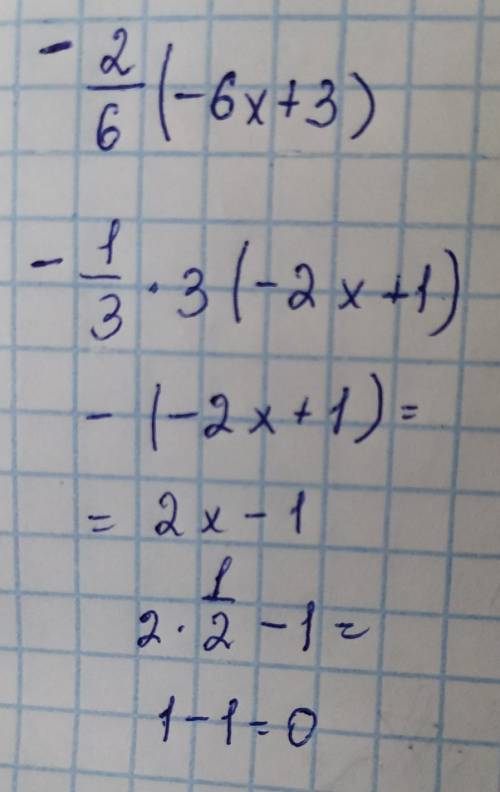 - 2/6 (-6x+3)
- 1/3 · 3 (-2x+1)
- (-2x+1) =
= 2x - 1
2 · 1/2 - 1 =
1 - 1 = 0